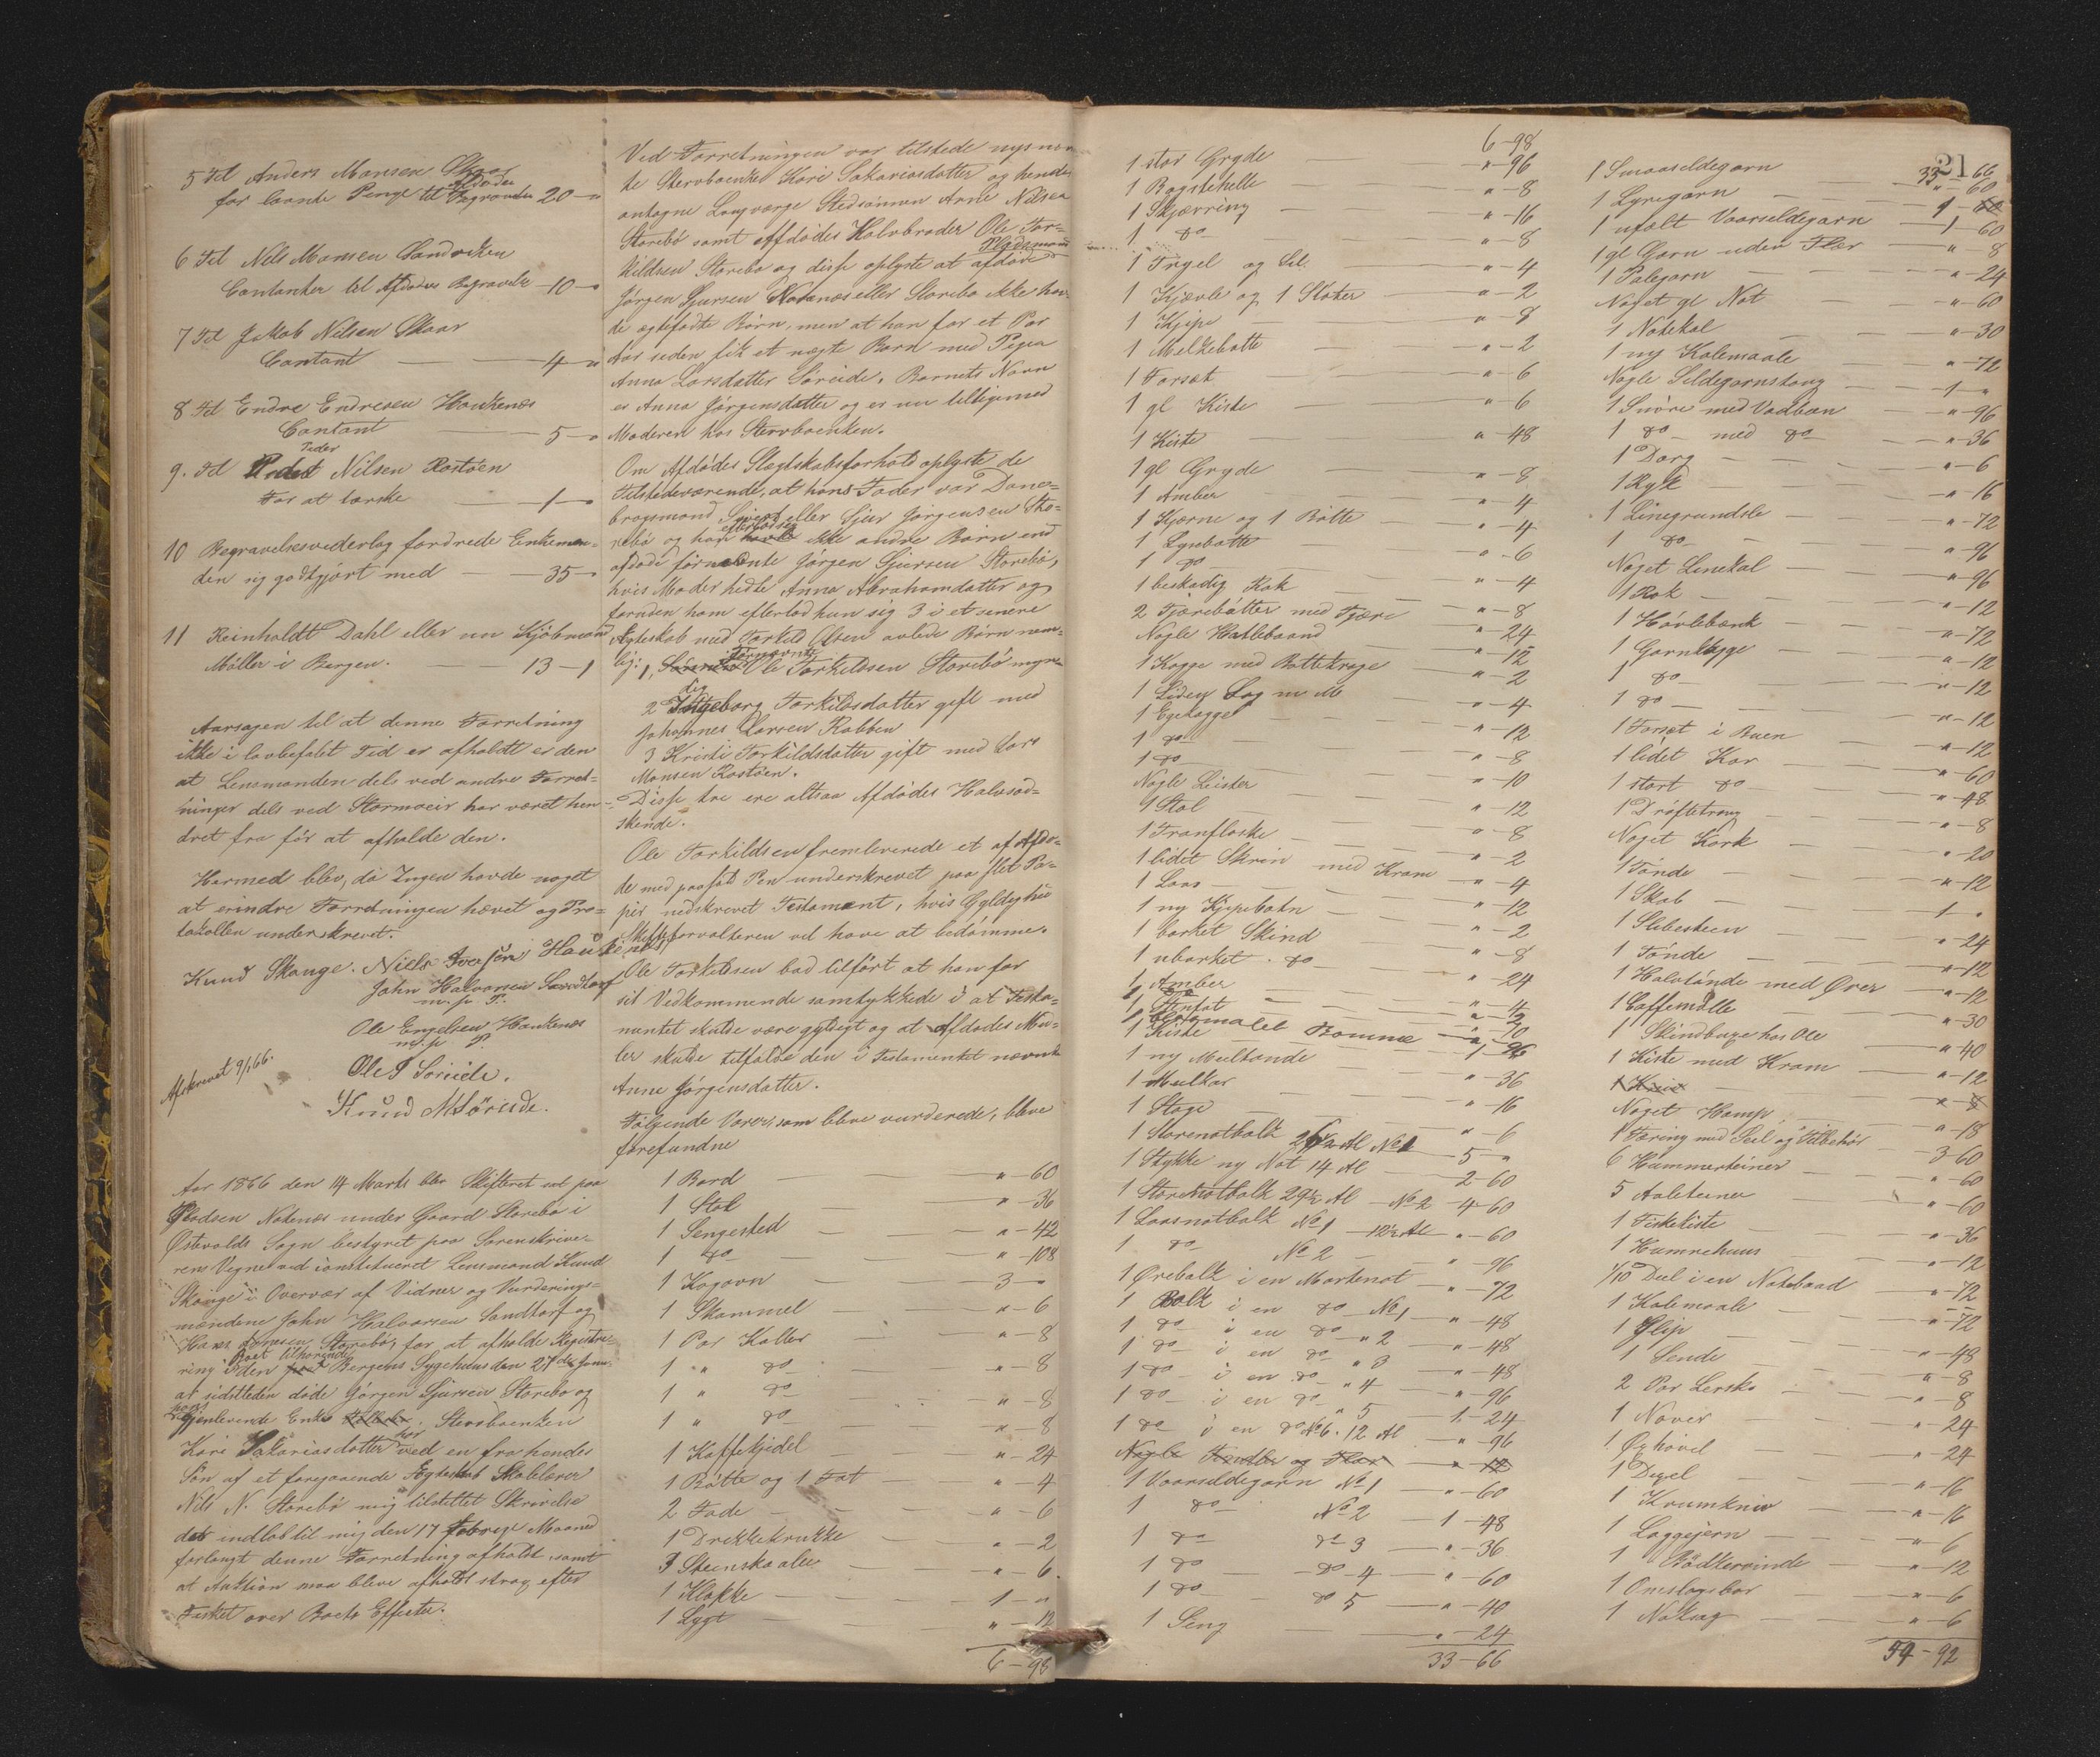 5 Til Anders Monsen Skaar
for laante Penge til Afdødes Begravelse 20 - "
6 Til Nils Monsen Sandviken
Contanter til Afdødes Begravelse - 10 - "
7 Til Jakob Nilsen Skaar
Contant - 4 - "
8 Til Endre Endresen Haukenæs
Contant - 5 - "
9. Til Peder Nilsen Rostøen
For at tærske - 1 - "
10 Begravelsesvederlag fordrede Enkeman=
den sig godtgjort med - 35 - "
11 Reinholdt Dahl eller nu Kjøbmand
Møller i Bergen. - 13 - 1
Aarsagen til at denne Forretning
ikke i lovbefalet Tid er afholdt er den
at Lensmanden dels ved andre Forret=
ninger dels ved Stormveir har været hin=
dret fra før at afholde den.
Hermed blev, da Ingen havde noget
at erindre Forretningen hævet og Pro=
tokollen underskrevet.
Knud Skauge. Niels Iversen Haukenæs
John Halvorsen Sandtorf
m. p. P.
Ole Engelsen Haukenæs
m. p. P.
Ole J Søreide.
Knud M Søreide.
Afskrevet 9/1 66.
Aar 1866 den 14 Marts blev Skifteret sat paa
Pladsen Notenæs under Gaard Storebø i
Østevolds Sogn bestyret paa Sorenskrive=
rens Vegne ved constitueret Lensmand Knud
Skauge i Overvær af Vidner og Vurderings=
mændene John Halvorsen Sandtorf og
Hans Storebø, for at afholde Registre=
ring i Boet tilhørende den paa Bergens Sygehuus den 27de Janu.
at sidstleden døde Jørgen Sjursen Storebø og
hans gjenlevende Enke. Stervboenken
Kari Sakariasdatter har ved en fra hendes
Søn af et foregaaende Ægteskab Skolelærer
Nils N. Storebø mig tilstillet Skrivelse
der indløb til mig den 17 forrige Maaned
forlangt denne Forretning afholdt, samt
at Auktion maa blive afholdt strax efter
Fisket over Boets Effecter.
Ved Forretningen var tilstede nysnævn
te Stervboenke Kari Sakariasdatter og hendes
antagne Laugværge Stedsønnen Arne Nilsen
Storebø samt Afdødes Halvbroder Ole Tor=
kildsen Storebø og disse oplyste at afdøde Pladsmand
Jørgen Sjursen Notenæs eller Storebø ikke hav=
de ægtefødte Børn, men at han for et Par
Aar siden fik et uægte Barn med Pigen
Anna Larsdatter Søreide. Barnets Navn
er Anna Jørgensdatter og er nu tilligemed
Moderen hos Stervboenken.
Om Afdødes Slægtskabsforhold oplyste de
Tilstedeværende, at hans Fader var Dane=
brogsmand Sivert eller Sjur Jørgensen Sto=
rebø og han efterlod sig ikke andre Børn end
afdøde førnævnte Jørgen Sjursen Storebø,
hvis Moder hedte Anna Abrahamdatter og
foruden ham efterlod hun sig 3 i et senere
Ægteskab med Torkild Olsen avlede Børn nem=
lig: 1, Førnævnte Ole Torkildsen Storebø myn=
dig
2 Ingeborg Torkildsdatter gift med
Johannes Larsen Rabben
3 Kristi Torkildsdatter gift med Lars
Monsen Rostøen.
Disse tre ere altsaa Afdødes Halvsød=
skende.
Ole Torkildsen fremleverede et af Afdø=
de med paaholdt Pen underskrevet paa slet Pa=
pir nedskrevet Testament, hvis Gyldighed
Skifteforvalteren vil have at bedømme.
Ole Torkildsen bad tilført at han for
sit Vedkommende samtykkede i at Testa=
mentet skulde være gyldigt og at Afdødes Mid=
ler skulde tilfalde den i Testamentet nævnte
Anne Jørgensdatter.
Følgende Varer, som bleve vurderede, bleve
forefundne
1 Bord - " - 60
1 Stol - " - 36
1 Sengested - " - 42
1 do - " - 108
1 Kogovn - 3 - "
1 Skammel - " - 6
1 Par Kaller - " - 8
1 " do - " - 8
1 " do - " - 8
1 " do - " - 8
1 Kaffekjedel - " - 24
1 Bøtte og 1 Fat - " - 4
2 Fade - " - 6
1 Drikkekrukke - " - 2
3 Steenskaaler - " - 6.
1 Klokke - 1 - "
1 Lygt - " - 12
6 - 98
6 - 98
1 stor Gryde - " - 96
1 Bagstehelle - " - 8
1 Skjærring - " - 16
1 do - " - 8
1 Trygel og Sil - " - 4
1 Kjævle og 1 Sloker - " - 2
1 Kjipe - " - 8
1 Melkebøtte - " - 2
1 Forsæt - " - 6
1 gl Kiste - " - 6
1 Kiste - " - 48
1 gl Gryde - " - 8
1 Amber - " - 4
1 Kjærne og 1 Bøtte - " - 4
1 Lysebøtte - " - 6
1 do - " - 4
1 beskadig Rok - " - 8
2 Tjærebøtter med Tjære - " - 24
Nogle Hatlebaand - " - 12
1 Kagge med - " - 2
1 Liden Sag m M - " - 4
1 Egekagge - " - 12
1 do - " - 8
1 do - " - 10
Nogle Leister - " - 12
1 Stol - " - 8
1 Tranflaske - " - 2
1 lidet Skrin med Kram - " - 4
1 Laas - " - 12
1 ny Kjipebotn - " - 2
1 barket Skind - " - 8
1 ubarket do - " - 24
1 Amber
1 do
1 Stenfat
1 Bomme
1 Kiste
1 ny Meeltønde
1 Meelkar - " - 36
1 Stige - " - 16
1 Storenotbolk No 1 - " - 6
1 Stykke ny Not 14 Al - 5 - "
1 StoreNotbolk 29½ Al - No 2 - 2 - 60
1 Laasnotbolk No 1 - 12½ Al - 4 - 60
1 do No 2 - " - 60
1 Ørebolk i en Mortenot - " - 96
1 Bolk i en do No 1 - " - 72
1 do i en do " 2 - " - 48
1 do i en do " 3 - " - 48
1 do i en do " 4 - " - 48
1 do i en do " 5 - " - 96
1 do i en do No 6. 12 Al - 1 - 24
Nogle og Flær - " - 12
1 Vaarsildegarn No 1 - " - 60
1 do No 2 - 1 - 48
1 do do 3 - " - 36
1 do do 4 - " - 60
1 do do 5 - " - 40
1 Seng - " - 24
33 - 66
21
33 - 66
1 Smaasildegarn - " - 60
1 Lyregarn
1 ufølt Vaarsildegarn - 1 - 60
1 gl Garn uden Flær - " - 8
1 Palegarn - " - 24
Noget gl Not - " - 60
1 Notekal - " - 30
1 ny Kalemaale - " - 72
Nogle Sildegarnstoug - 1 - "
1 Snøre med Vadbeen - " - 96
1 do med do - " - 36
1 Dorg - " - 6
1 Ryk - " - 16
1 Linegrundsle - " - 72
1 do - " - 96
Noget Linekal - " - 96
1 Rok - " - 12
1 Høvlebænk - " - 72
1 Garnklygge - " - 12
1 do - " - 12
1 do - " - 12
1 Forsæt i Buen - " - 12
1 lidet Kar - " - 60
1 stort do - " - 48
1 Drøftetroug - " - 8
Noget Kork - " - 20
1 Tønde - " - 12
1 Skab - 1 - "
1 Slibesteen - " - 24
1 Tønde - " - 12
1 Halvtønde med Ører - " - 12
1 Caffemølle - " - 30
1 Skindbuxe hos Ole - " - 40
1 Kiste med Kram - " - 12
1 Kniv - " - 8
Noget Hamp - " - 18
1 Færing med Seil og Tilbehør - 3 - 60
6 Hummerteiner - " - 60
5 Aaleteiner - " - 60
1 Fiskekiste - " - 36
1 Humrehuus - " - 12
1/10 Deel i en Notebaad - " - 72
1 Kalemaale - " - 72
1 Glip - " - 48
1 Sende - " - 8
2 Par Lersko - " - 8
1 Naver - " - 24
1 Øxhøvel - " - 24
1 Dexel - " - 16
1 Krumkniv - " - 16
1 Laggejern - " - 6
1 Bødkervinde - " - 12
1 Omslagsbor - " - 6
1 Notsag - " - 6
54 - 92